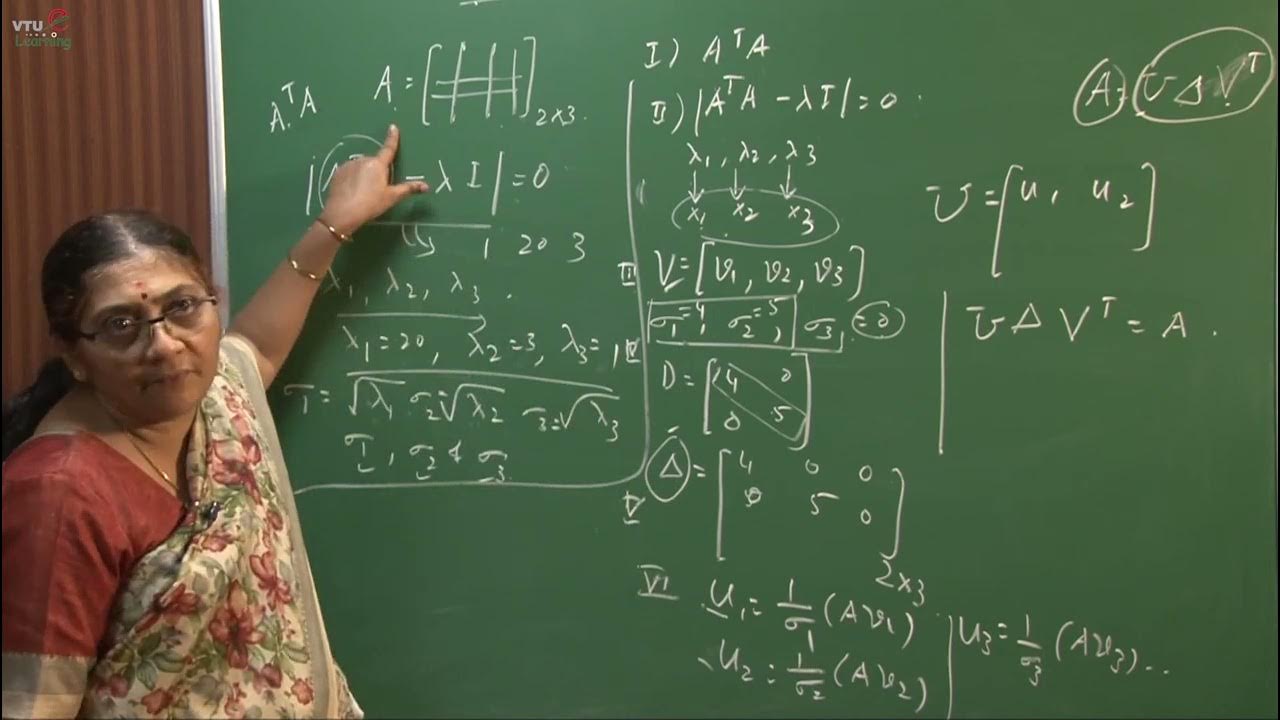 VTU e
Learning
AᵀA
A = [ ]₂ₓ₃.
| - λI | = 0
1 20 3
λ₁, λ₂, λ₃.
λ₁ = 20, λ₂ = 3, λ₃ = 1,
σ₁ = √λ₁ σ₂ = √λ₂ σ₃ = √λ₃
σ₁, σ₂ & σ₃
I) AᵀA
II) |AᵀA - λI| = 0.
λ₁, λ₂, λ₃
↓ ↓ ↓
x₁ x₂ x₃
III V = [v₁, v₂, v₃]
IV σ₁ = 4, σ₂ = 5, σ₃, = 0
D = [4 0
0 5]
V Δ = [4 0 0
0 5 0]
2x3
VI u₁ = 1/σ₁ (Av₁)
u₂ = 1/σ₂ (Av₂)
u₃ = 1/σ₃ (Av₃)..
A = U Δ Vᵀ
U = [u₁ u₂]
U Δ Vᵀ = A.